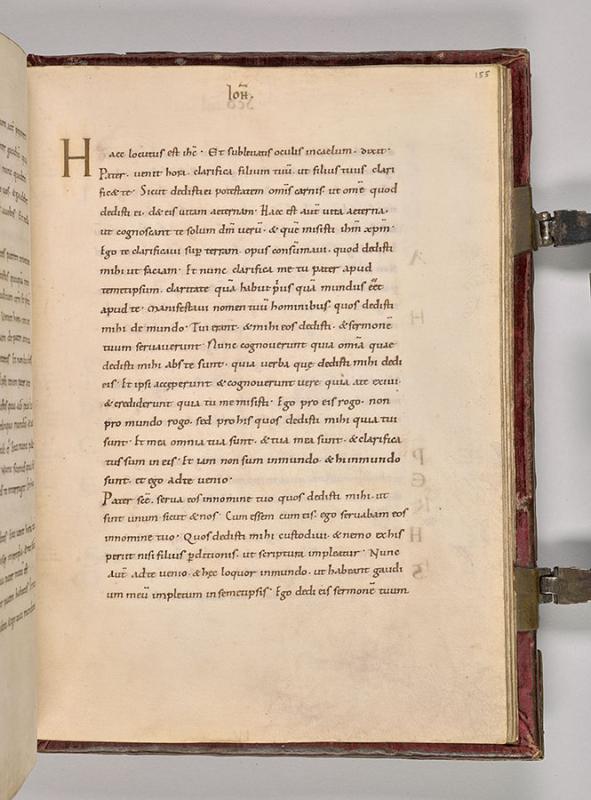 155
Ioħ.
Haec locutus est ihc. Et subleuatis oculis incaelum. dixit.
Pater. uenit hora. clarifica filium tuū. ut filius tuus clari
ficæ te. Sicut dedisti ei potestatem omīs carnis. ut omē quod
dedisti ei. dæ eis uitam aeternam. Haec est aut̄ uita aeterna.
ut cognoscant te solum dm̄ uerū. & quē misisti ihm̄ xpm̄.
Ego te clarificaui sup̄ terram. opus consūmaui. quod dedisti
mihi ut faciam. Et nunc clarifica me tu pater apud
temetipsum. claritate quā habui p̄us quā mundus eēt
apud te. Manifestaui nomen tuū hominibus. quos dedisti
mihi de mundo. Tui erant. & mihi eos dedisti. & sermonē
tuum seruauerunt. Nunc cognouerunt quia omīa quae
dedisti mihi. abs te sunt. quia uerba quę dedisti mihi dedi
eis. Et ipsi acceperunt & cognouerunt uere quia ate exiui.
& crediderunt quia tu me misisti. Ego pro eis rogo. non
pro mundo rogo. sed pro his quos dedisti mihi quia tui
sunt. Et mea omnia tua sunt. & tua mea sunt. & clarifica
tus sum in eis. Et iam non sum inmundo. & hi inmundo
sunt. et ego adte uenio.
Pater scē. serua eos innomine tuo quos dedisti mihi. ut
sint unum sicut & nos. Cum essem cum eis. ego seruabam eos
innomine tuo. Quos dedisti mihi custodiui. & nemo exhis
periit nisi filius p̄ditionis. ut scriptura impleatur. Nunc
aut̄ adte uenio. & hęc loquor inmundo. ut habeant gaudi
um meū impletum in semetipsis. Ego dedi eis sermonē tuum